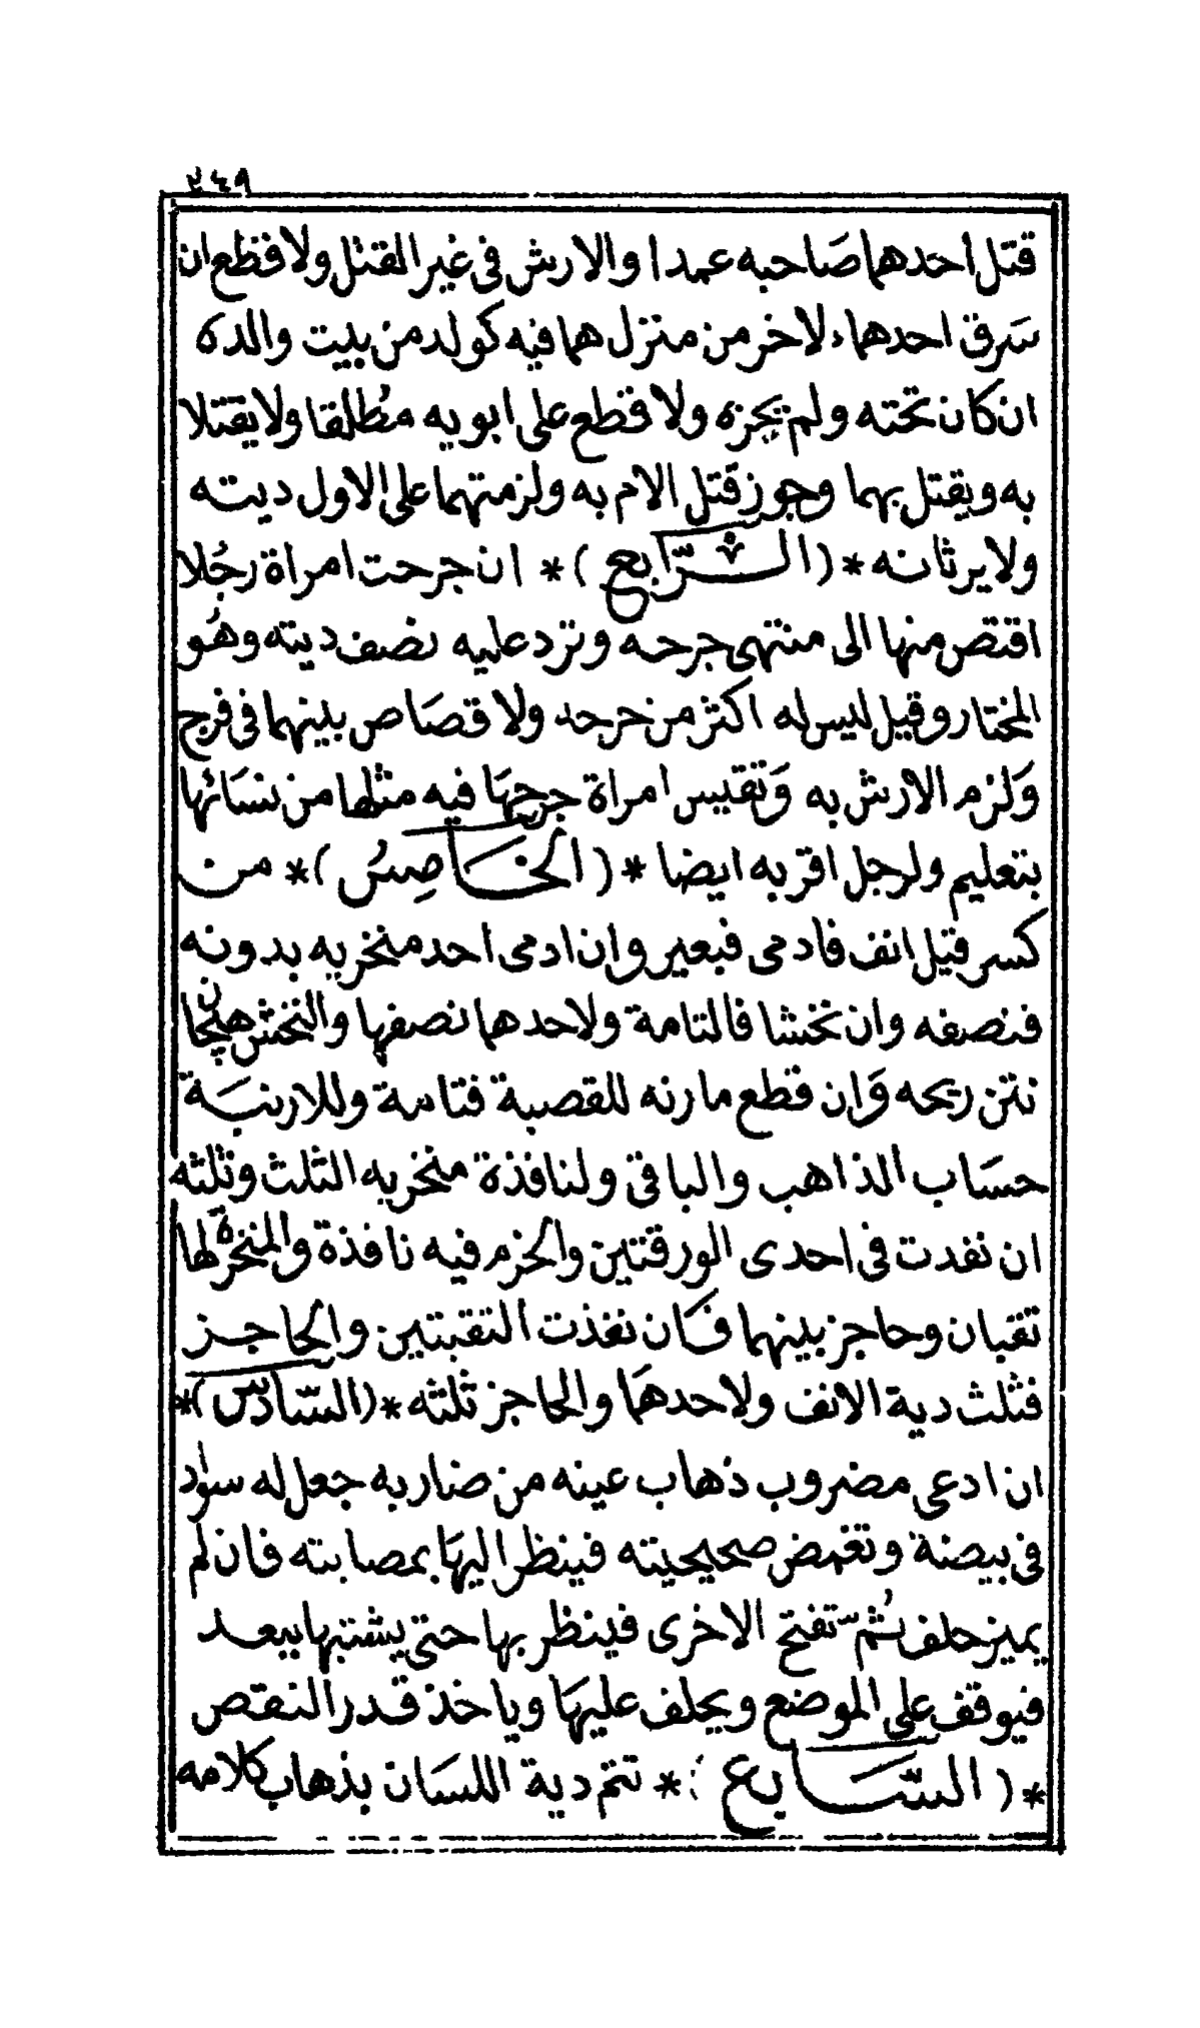 ٣٤٩
قتل احدهما صَاحبه عمدا والارش فى غير القتل ولا قطع ان
سَرق احدهماء لاخر من منزل هما فيه كولد من بيت والده
ان كان تحته ولم يجزه ولا قطع على ابويه مطلقا ولا يقتلا
به ويقتل بهما وجوز قَتل الام به ولزمتهما على الاول ديته
ولا يرثانه * (الرّابع) * ان جرحت امراة رجُلا
اقتص منها الى منتهى جرحه وترد عليه نصف ديته وهُو
المختار وقيل ليس له اكثر من جرحه ولا قصَاص بينهما فى فرج
وَلزم الارش به وَتقيس امراة جرحهَا فيه مثلها من نسَائها
بتعليم ولرجل اقر به ايضا * (الخَامِسُ) * من
كسر قيل انف فادمى فبعير وان ادمى احد منخريه بدونه
فنصفه وان نخشا فالتامة ولاحدهما نصفها والنخش هيجان
نتن ريحه وَان قطع مارنه للقصبة فتامة وللارنبَة
حسَاب الذاهب والباقى ولنافذة منخريه الثلث وثلثه
ان نفدت فى احدى الورقتين والخزم فيه نافذة والمنخرة لها
ثقبان وحاجز بينهما فَان نفذت الثقبتين والحاجز
فثلث دية الانف ولاحدهَا والحاجز ثلثه * (السّادس) *
ان ادعى مضروب ذهاب عينه من ضاربه جعل له سواد
فى بيضة وتغمض صحيحيته فينظر اليهَا بمصابته فان لم
يميز حلف ثُمّ تفتح الاخرى فينظر بها حتى يشتبها ببعد
فيوقف على الموضع ويحلف عليهَا وياخذ قدر النقص
* (السّابع) * تتم دية اللسَان بذهاب كلامه